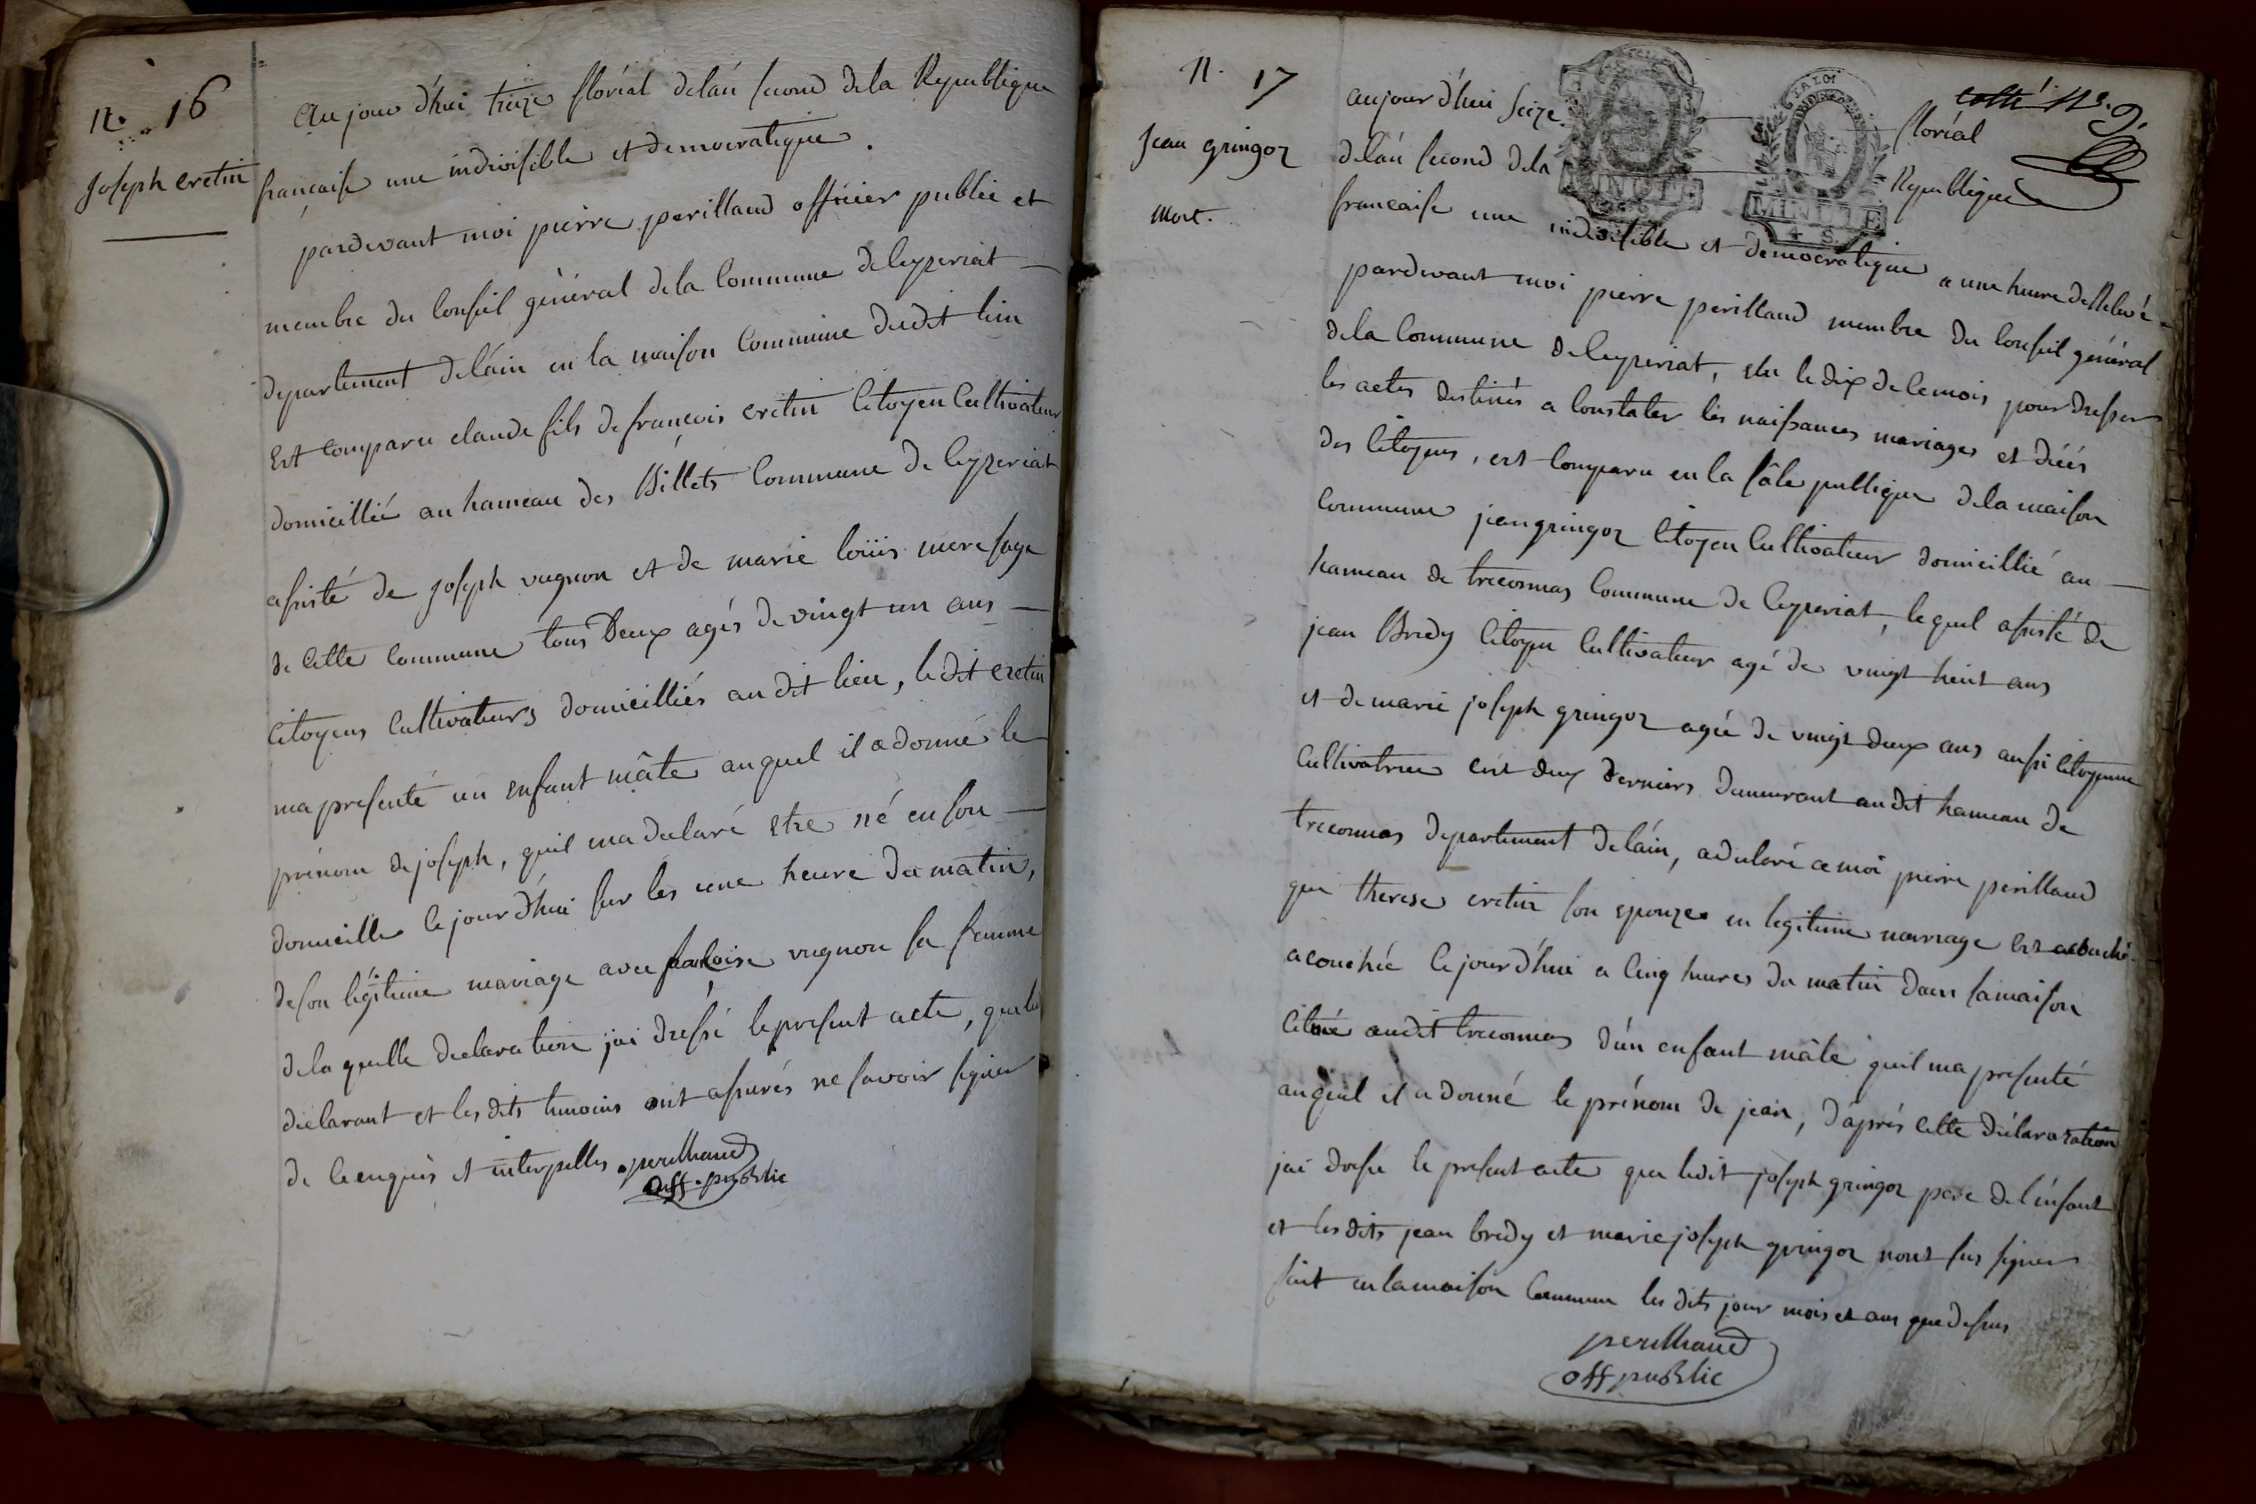 N. 16
Joseph cretin
Aujourd'hui treize floréal delan second dela Republique
francaise une indivisible et democratique.
pardevant moi pierre perilland officier public et
membre du Conseil général dela Commune deleyzeriat
departement delain en la maison Commune dudit lieu
Est comparu claude fils de francois cretin Citoyen Cultivateur
domicillié au hameau des Billets Commune de Ceyzeriat
assisté de joseph vugnon et de marie loüis mere sage
de Cette Commune tous Deux agés de vingt un ans
Citoyens Cultivateurs domicilliés audit lieu, ledit cretin
ma presenté un enfant mâle auquel il a donné le
prénom de joseph, quil ma declaré Etre né en son
domicille Cejourd'hui sur les une heure du matin,
deson légitime mariage avec francoise vugnon sa femme
dela quelle declaration jai dressé lepresent acte, que le
déclarant et lesdits temoins ont assurés ne savoir signer
de Ce enquis et interpellés. perilhaud
off. public
N. 17
Jean gringoz
Mort.
cotté N.e 9.
MINUTE
MINUTE
4 S
LA LOI
aujourd'hui Seize floréal
delan second dela Republique
francaise une indivisible et democratique a une heure de Relevé
pardevant moi pierre perilland membre du Conseil général
dela Commune deleyzeriat, elu le dix de Cemois pour dresser
les actes destinés a Constater les naissances mariages et décés
des Citoyens, est Comparu en la sâle publique dela maison
Commune jean gringoz Citoyen Cultivateur domicillié au
hameau de treconnas Commune de Ceyzeriat, lequel assisté de
jean Bredy Citoyen Cultivateur agé de vingt huit ans
et de marie joseph gringoz agée de vingt deux ans aussi Citoyenne
Cultivatrice ces deux derniers demeurant audit hameau de
treconnas departement delain, adeclaré a moi pierre perilland
que therese cretin son epouze en legitime mariage est acouché
acouchée Cejourd'hui a Cinq heures du matin dans samaison
Cituée audit treconnas d'un enfant mâle quil ma presenté
auquel il a donné le prénom de jean, d'aprés Cette déclaration
jai dressé le present acte que ledit joseph gringoz pere del'enfant
et lesdits jean bredy et marie joseph gringoz nont sus signer
fait en lamaison Commune lesdits jour mois et ans que dessus
perilhaud
off public